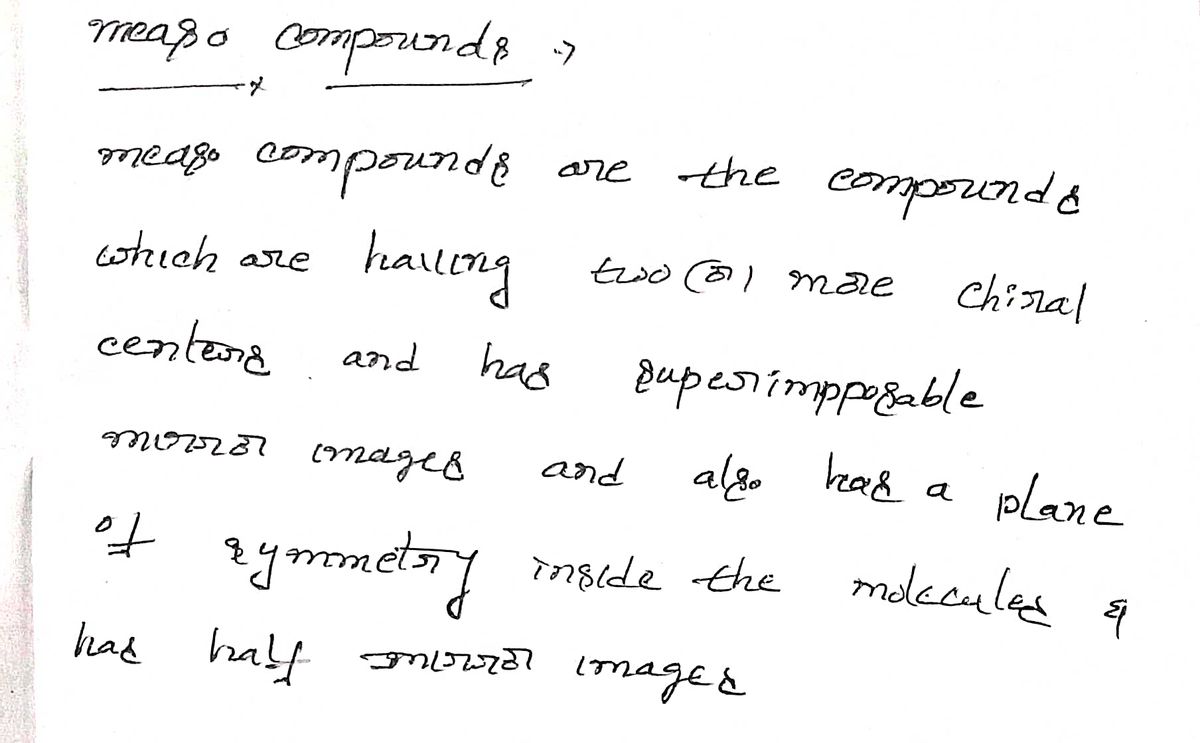 measo compounds :-
measo compounds are the compounds
which are having two (or) more chiral
centers and has superimpposable
mirror images and also has a plane
of symmetry inside the molecules &
has half mirror images